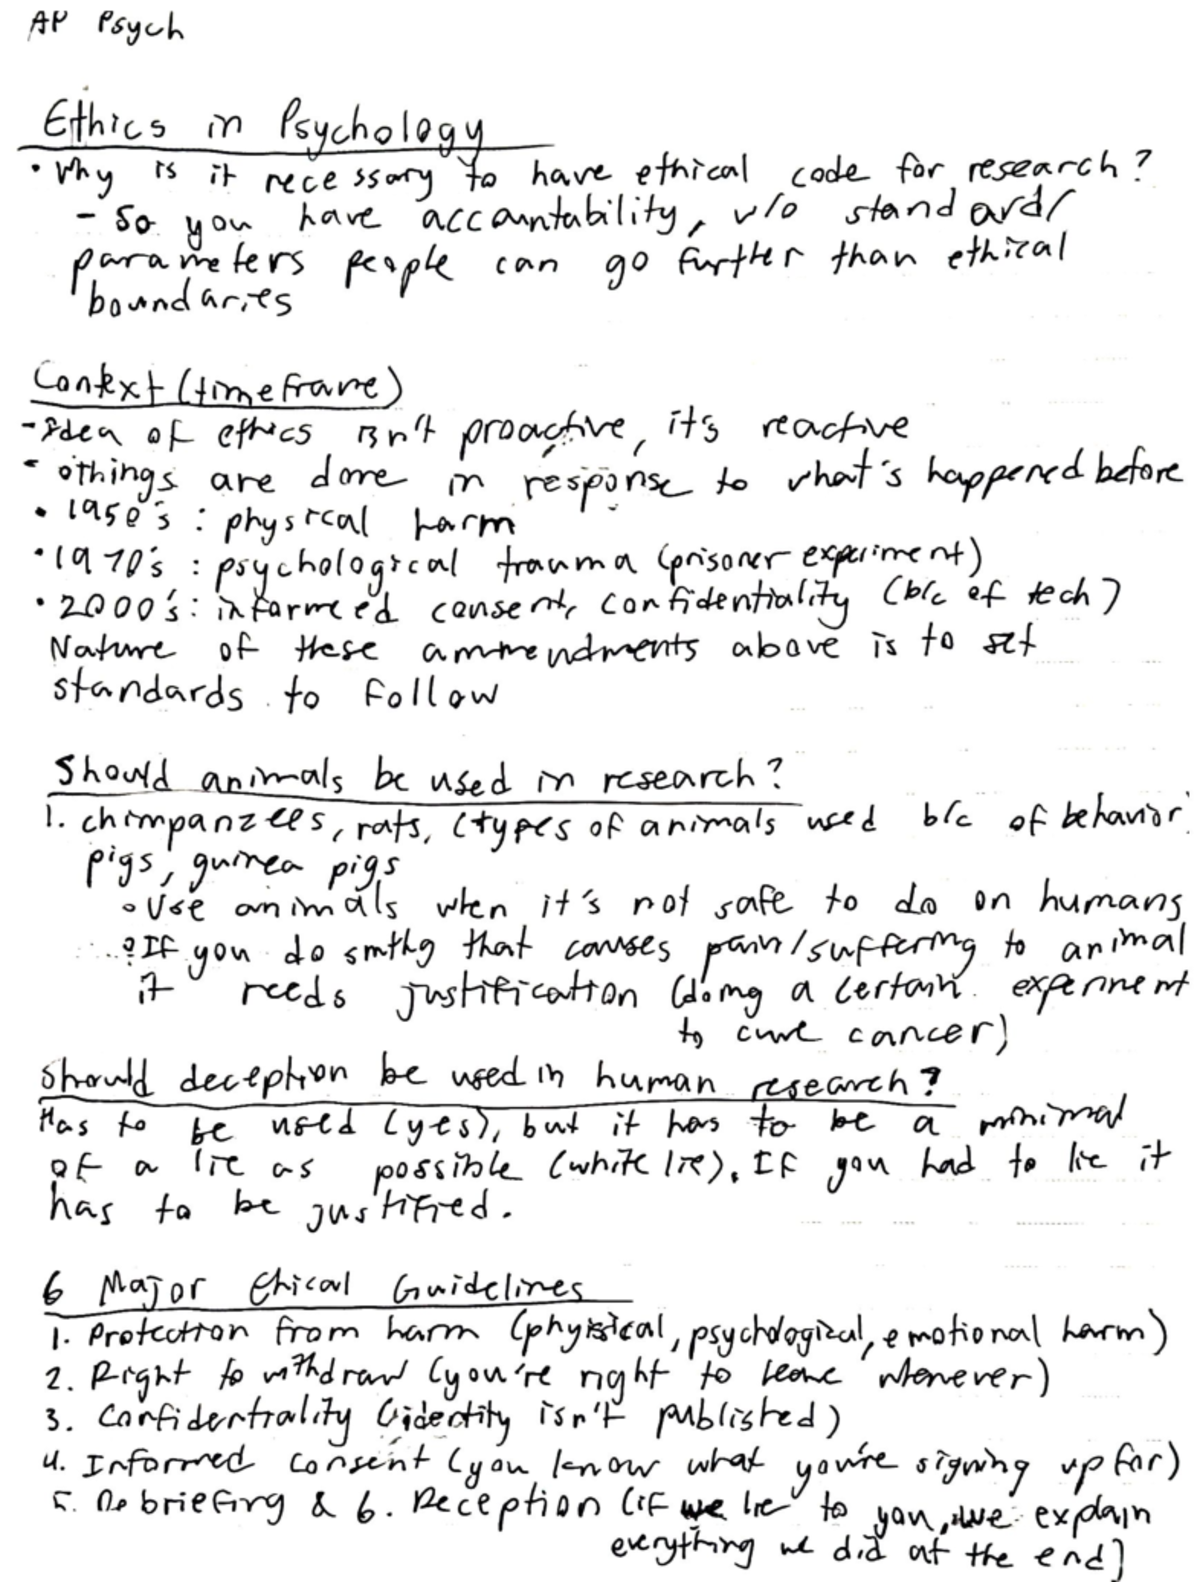 AP Psych
Ethics in Psychology
• Why is it necessary to have ethical code for research?
- So you have accountability, w/o standard/
parameters people can go further than ethical
boundaries
Context (timeframe)
- Idea of ethics isn't proactive, it's reactive
- things are done in response to what's happened before
• 1950's : physical harm
• 1970's : psychological trauma (prisoner experiment)
• 2000's : informed consent, confidentiality (b/c of tech)
Nature of these ammendments above is to set
standards to follow
Should animals be used in research?
1. chimpanzees, rats, (types of animals used b/c of behavior
pigs, guinea pigs
◦ Use animals when it's not safe to do on humans
◦ If you do smthg that causes pain/suffering to animal
it needs justification (doing a certain experiment
to cure cancer)
Should deception be used in human research?
Has to be used (yes), but it has to be a minimal
of a lie as possible (white lie). If you had to lie it
has to be justified.
6 Major Ehical Guidelines
1. Protection from harm (physical, psychological, emotional harm)
2. Right to withdraw (you're right to leave whenever)
3. Confidentiality (identity isn't published)
4. Informed consent (you know what you're signing up for)
5. Debriefing & 6. Deception (if we lie to you, we explain
everything we did at the end)